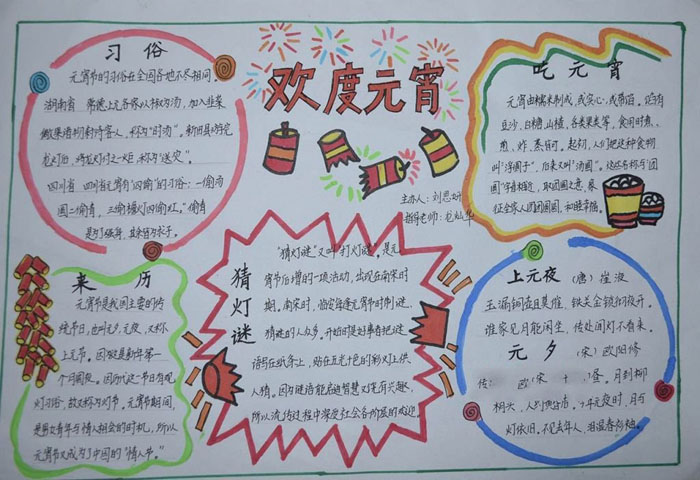 欢度元宵
主办人:刘思妍
指导老师:
习俗
元宵节的习俗在全国各地不尽相同。
湖南省 常德上元各家以椒为汤,加入韭菜
待客人,称为"时汤"。新田县
称为"送灾"。
四川省 四川省元宵有"四偷"的习俗:一偷汤
圆二偷青,三偷檐灯四偷红。"偷青
吃元宵
元宵由糯米制成,或实心,或带馅。馅有
豆沙、白糖、山楂、各类果类等,食用时煮、
煎、炸、蒸皆可。起初,人们把这种食物
叫"浮圆子",后来又叫"汤圆"。这些名称与"团
圆"字音相近,取团圆之意,象
征全家人团团圆圆,和睦幸福。
来历
元宵节是我国主要的传
统节日,也叫元夕、元夜,又称
上元节。因为这是新年第一
个月圆夜。因历代这一节日有观
灯习俗,故又称为灯节。元宵节期间,
是男女青年与情人相会的时机,所以
元宵节又成为了中国的"情人节"。
猜灯谜
"猜灯谜"又叫"打灯谜"。是元
宵节后增的一项活动,出现在南宋时
期。南宋时,临安每逢元宵节时制谜、
猜谜的人众多。开始时是好事者把谜
语写在纸条上,贴在五光十色的彩灯上供
人猜。因为谜语能启迪智慧又饶有兴趣,
所以流传过程中深受社会各阶层的欢迎。
上元夜
(唐)崔液
玉漏铜壶且莫催,铁关金锁彻夜开。
谁家见月能闲坐,何处闻灯不看来。
元夕
(宋)欧阳修
昼。月到柳
灯依旧。不见去年人,泪湿春衫袖。